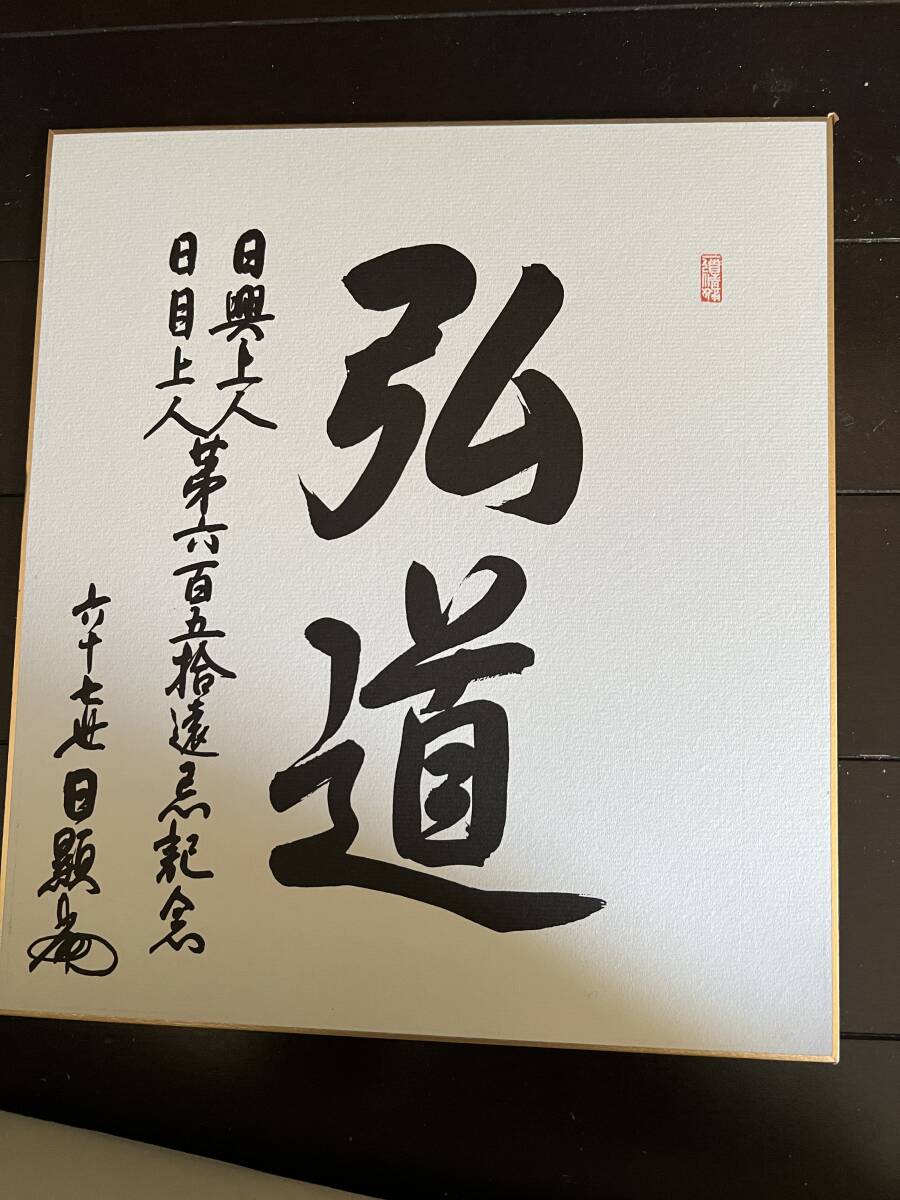 弘道
日興上人
日目上人
第六百五拾遠忌記念
六十七世 日顯